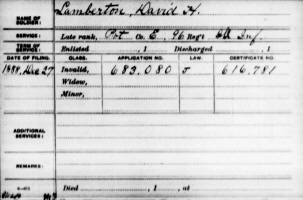 NAME OF SOLDIER: Lamberton, David H.
SERVICE: Late rank, Pvt Co. E, 96 Reg't Ill Inf.
TERM OF SERVICE: Enlisted , 1 Discharged , 1
DATE OF FILING. CLASS. APPLICATION NO. LAW. CERTIFICATE NO.
1888, Dec 27 Invalid, 683.080 J 616.781
Widow,
Minor,
ADDITIONAL SERVICES:
REMARKS:
Died , 1 , at